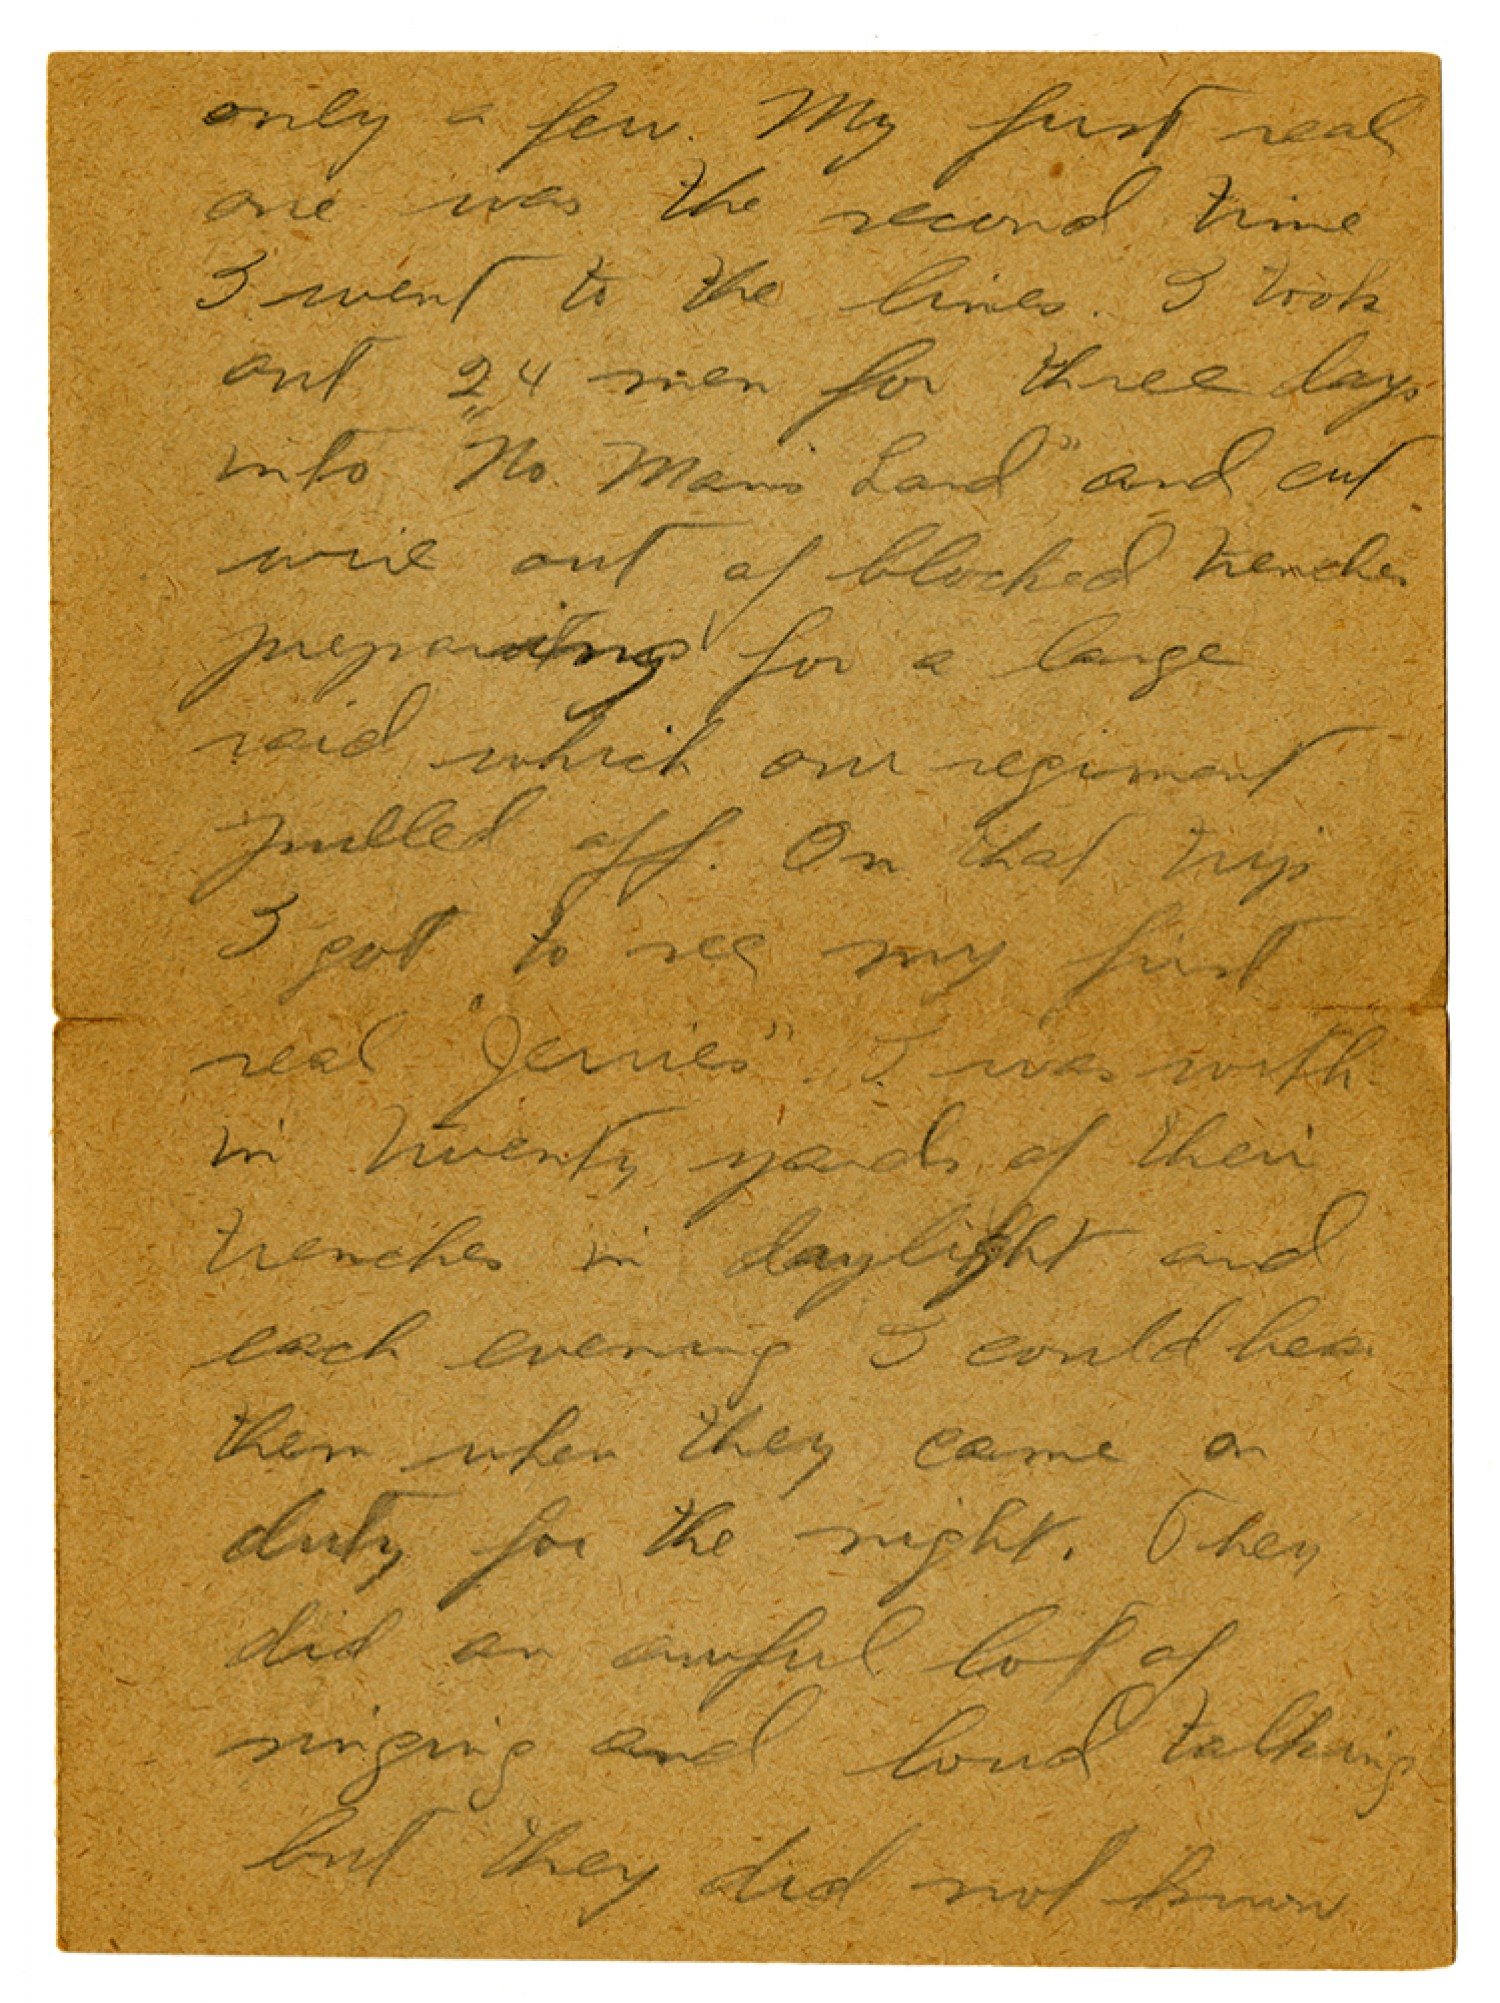 only a few. My first real
one was the second time
I went to the lines. I took
out 24 men for three days
into "No Man's Land" and cut
wire out of blocked trenches
preparing for a large
raid which our regiment
pulled off. On that trip
I got to see my first
real "Jerries". I was with-
in twenty yards of their
trenches in daylight and
each evening I could hear
them when they came on
duty for the night. They
did an awful lot of
singing and loud talking
but they did not know